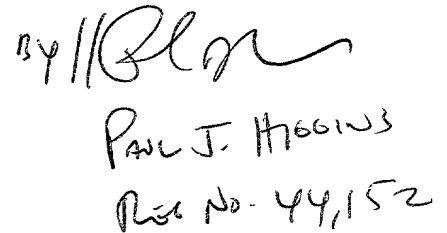 By
Paul J. Higgins
Reg No. 44,152